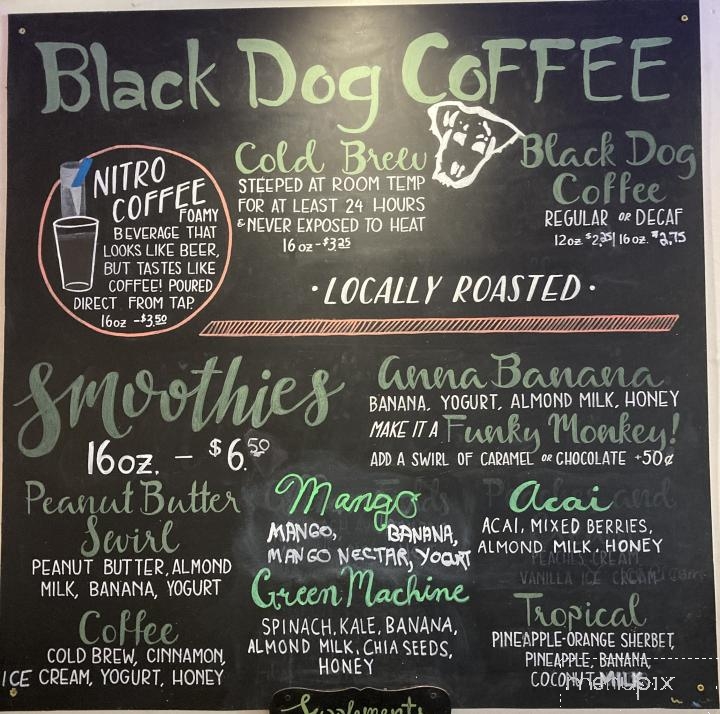 Black Dog COFFEE
NITRO
COFFEE
FOAMY
BEVERAGE THAT
LOOKS LIKE BEER,
BUT TASTES LIKE
COFFEE! POURED
DIRECT FROM TAP.
16oz -$3.50
Cold Brew
STEEPED AT ROOM TEMP
FOR AT LEAST 24 HOURS
& NEVER EXPOSED TO HEAT
16oz -$3.25
Black Dog
Coffee
REGULAR OR DECAF
12oz $2.25 | 16oz. $2.75
· LOCALLY ROASTED ·
Smoothies
16oz. - $6.50
Anna Banana
BANANA, YOGURT, ALMOND MILK, HONEY
MAKE IT A Funky Monkey!
ADD A SWIRL OF CARAMEL OR CHOCOLATE +50¢
Peanut Butter
Swirl
PEANUT BUTTER, ALMOND
MILK, BANANA, YOGURT
Coffee
COLD BREW, CINNAMON,
ICE CREAM, YOGURT, HONEY
Mango
MANGO, BANANA,
MANGO NECTAR, YOGURT
Green Machine
SPINACH, KALE, BANANA,
ALMOND MILK, CHIA SEEDS,
HONEY
Acai
ACAI, MIXED BERRIES,
ALMOND MILK, HONEY
PEACHES, CREAM,
VANILLA ICE CREAM
Tropical
PINEAPPLE-ORANGE SHERBET,
PINEAPPLE, BANANA,
COCONUT MILK
menupix
Supplements